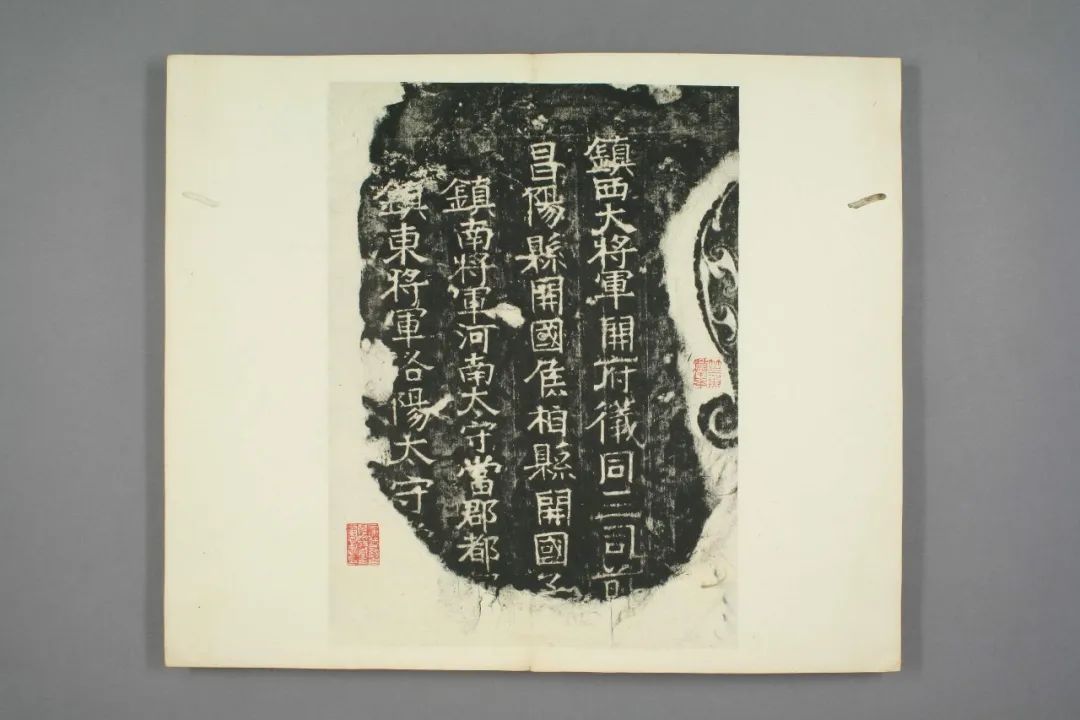 鎮西大將軍開府儀同三司前
昌陽縣開國侯柏縣開國子
鎮南將軍河南太守當郡都
鎮東將軍洛陽太守